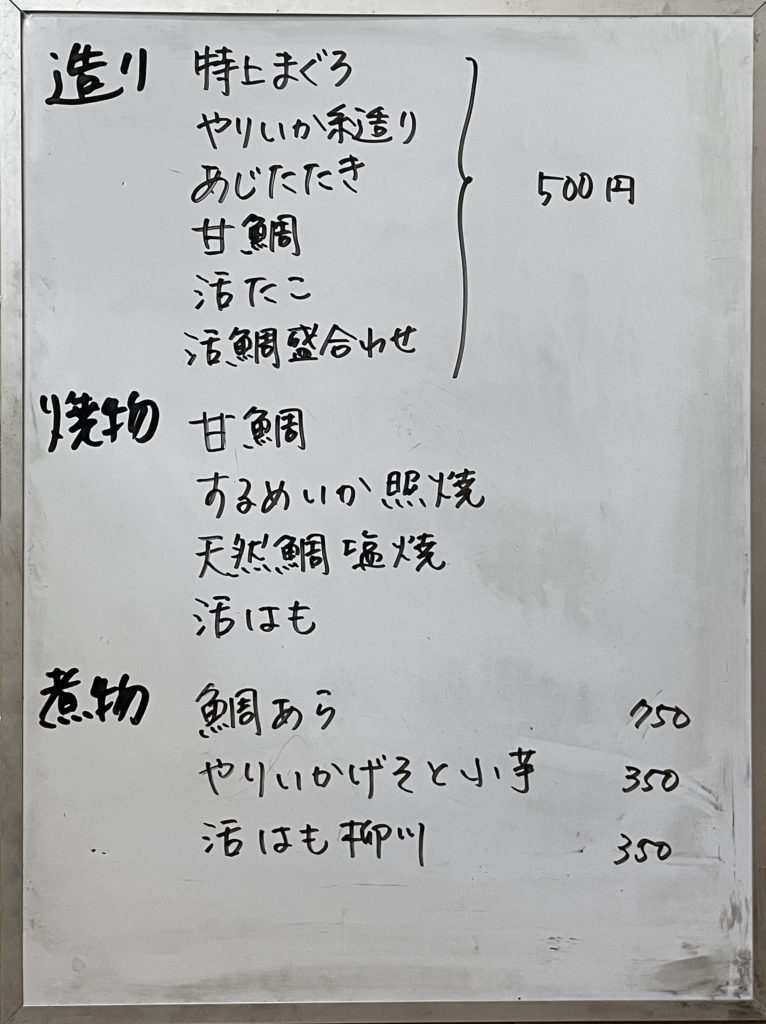 造り 特上まぐろ
やりいか糸造り
あじたたき
500円
甘鯛
活たこ
活鯛盛合わせ
焼物 甘鯛
するめいか照焼
天然鯛塩焼
活はも
煮物 鯛あら 750
やりいかげそと小芋 350
活はも柳川 350